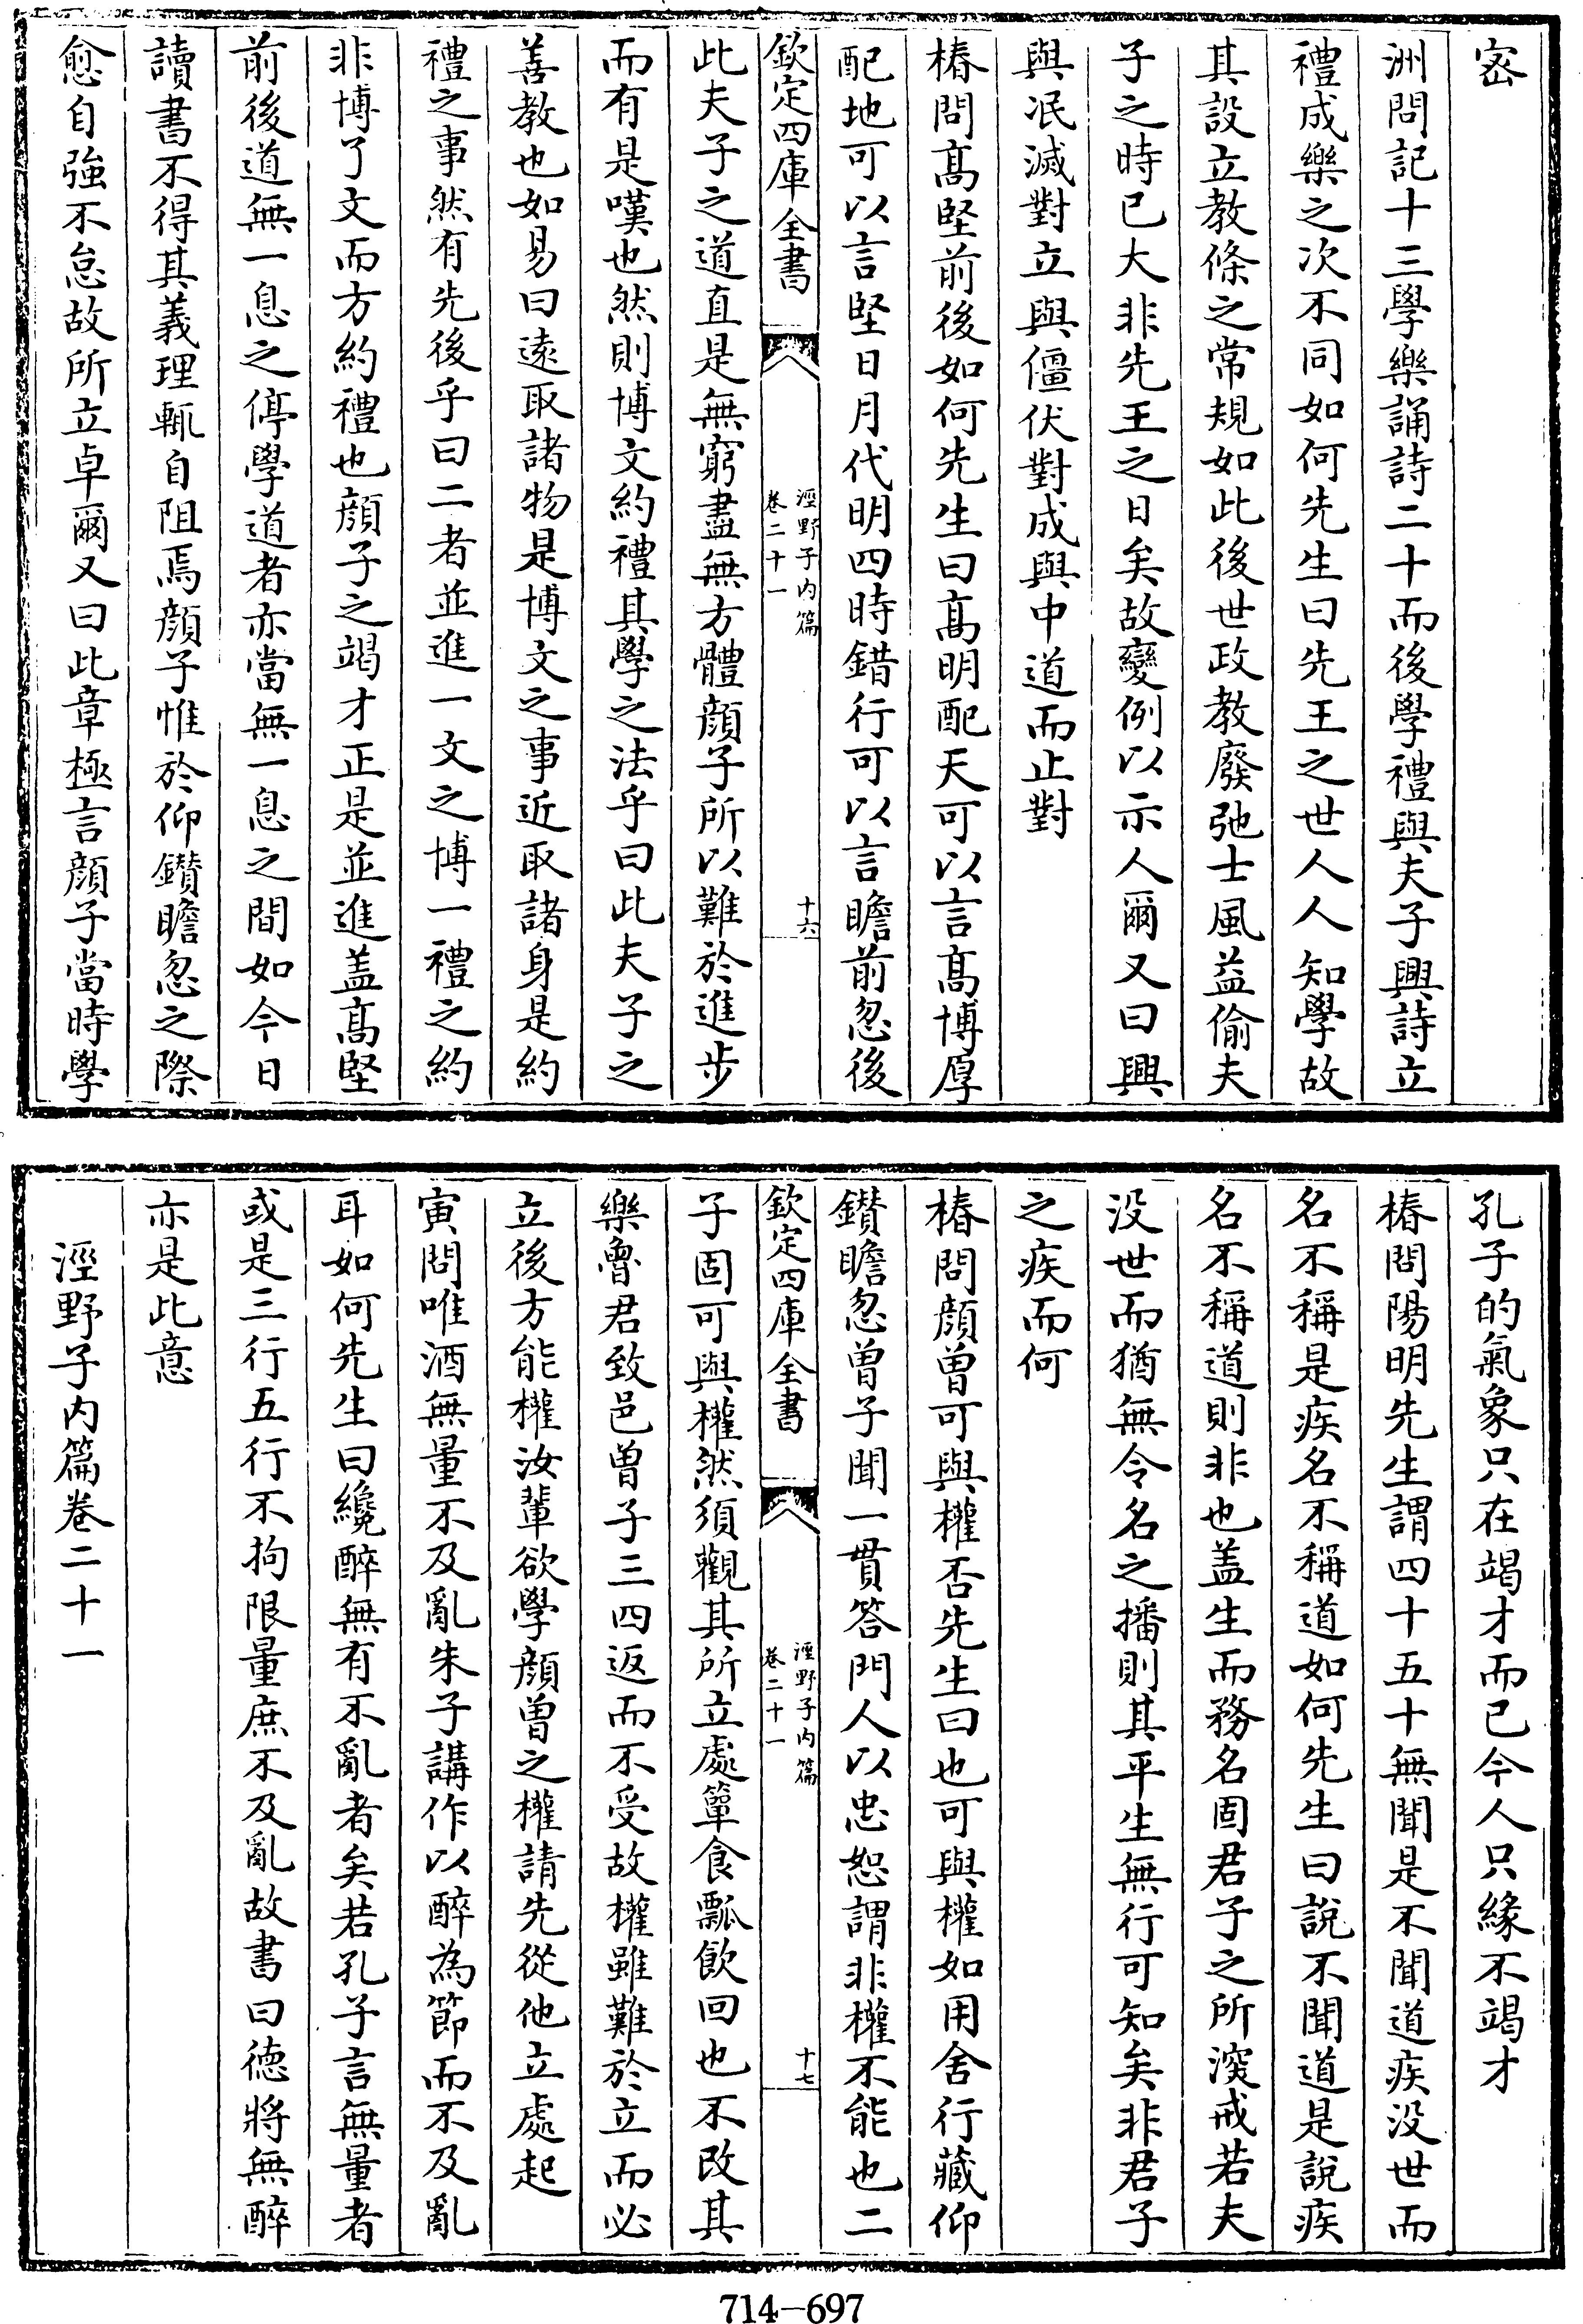 宻
洲問記十三學樂誦詩二十而後學禮與夫子興詩立
禮成樂之次不同如何先生曰先王之世人人知學故
其設立教條之常規如此後世政教廢弛士風益偷夫
子之時已大非先王之日矣故變例以示人爾又曰興
與泯滅對立與僵伏對成與中道而止對
椿問髙堅前後如何先生曰髙明配天可以言髙博厚
配地可以言堅日月代明四時錯行可以言瞻前忽後
欽定四庫全書
涇野子内篇
卷二十一
十六
此夫子之道直是無窮盡無方體顔子所以難於進步
而有是嘆也然則博文約禮其學之法乎曰此夫子之
善教也如易曰遠取諸物是博文之事近取諸身是約
禮之事然有先後乎曰二者並進一文之博一禮之約
非博了文而方約禮也顔子之竭才正是並進盖髙堅
前後道無一息之停學道者亦當無一息之間如今日
讀書不得其義理輒自阻焉顔子惟於仰鑚瞻忽之際
愈自強不怠故所立卓爾又曰此章極言顔子當時學
孔子的氣象只在竭才而已今人只緣不竭才
椿問陽明先生謂四十五十無聞是不聞道疾没世而
名不稱是疾名不稱道如何先生曰說不聞道是說疾
名不稱道則非也盖生而務名固君子之所深戒若夫
没世而猶無令名之播則其平生無行可知矣非君子
之疾而何
椿問顔曽可與權否先生曰也可與權如用舍行藏仰
鑚瞻忽曽子聞一貫答門人以忠恕謂非權不能也二
欽定四庫全書
涇野子内篇
卷二十一
十七
子固可與權然須觀其所立處簞食瓢飲回也不改其
樂魯君致邑曽子三四返而不受故權雖難於立而必
立後方能權汝輩欲學顔曽之權請先從他立處起
寅問唯酒無量不及亂朱子講作以醉為節而不及亂
耳如何先生曰纔醉無有不亂者矣若孔子言無量者
或是三行五行不拘限量庶不及亂故書曰德將無醉
亦是此意
涇野子内篇卷二十一
714-697